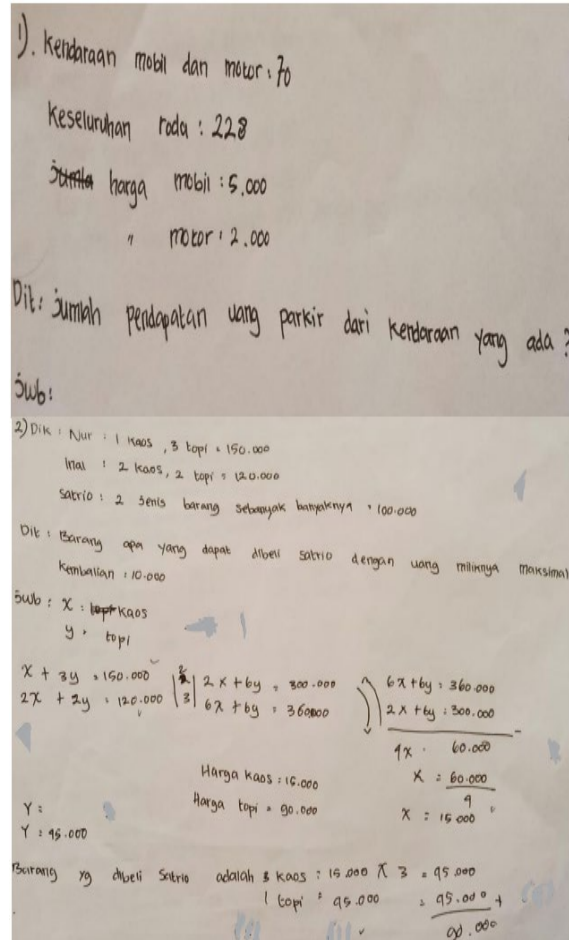 1). Kendaraan mobil dan motor : 70
Keseluruhan roda : 228
harga mobil : 5.000
" motor : 2.000
Dit : Jumlah pendapatan uang parkir dari kendaraan yang ada ?
Jwb :
2) Dik : Nur : 1 kaos , 3 topi = 150.000
Inal : 2 kaos, 2 topi = 120.000
Satrio : 2 Jenis barang sebanyak banyaknya = 100.000
Dit : Barang apa yang dapat dibeli satrio dengan uang miliknya maksimal
kembalian : 10.000
Jwb : x : kaos
y : topi
x + 3y = 150.000 | 2 | 2x + 6y = 300.000
2x + 2y = 120.000 | 3 | 6x + 6y = 360000
6x + 6y = 360.000
2x + 6y = 300.000 -
4x = 60.000
x = 60.000
4
x = 15 000
Harga kaos = 15.000
Harga topi =
Y =
Y = 45.000
Barang yg dibeli Satrio adalah 3 kaos : 15.000 x 3 = 45.000
1 topi = 45.000 = 45.000 +
90.000